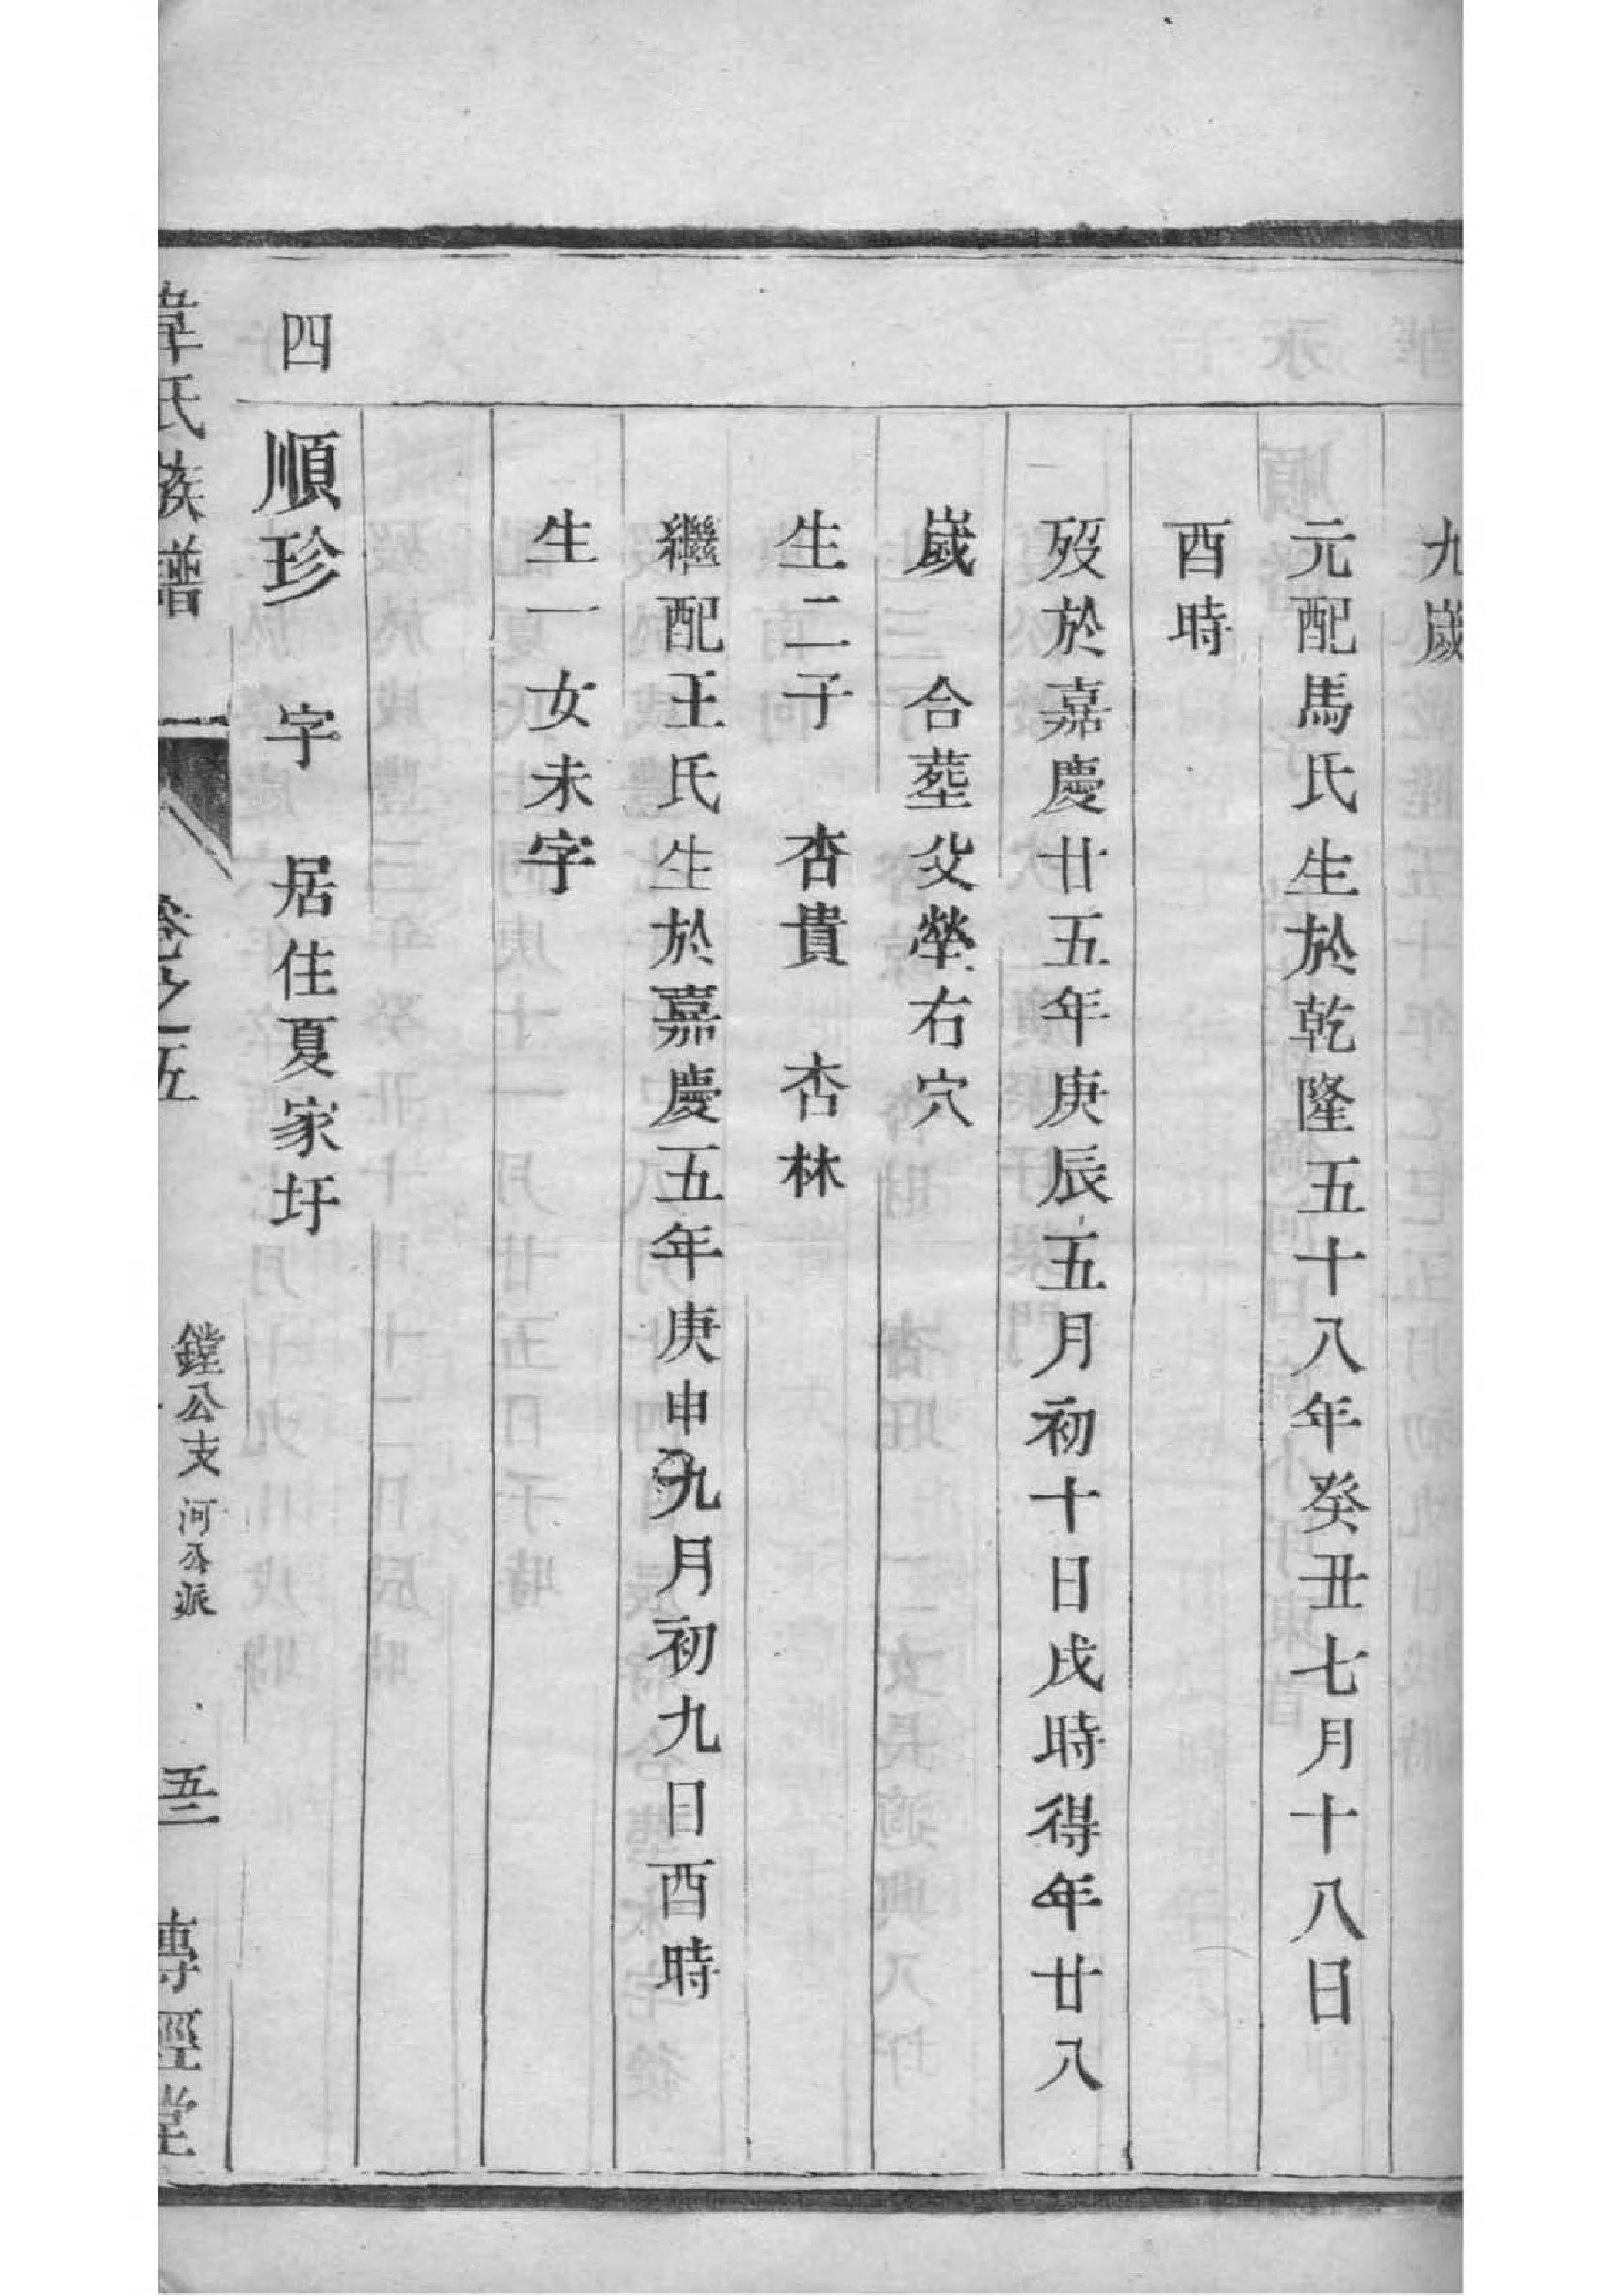 九歲
元配馬氏生於乾隆五十八年癸丑七月十八日
酉時
歿於嘉慶廿五年庚辰五月初十日戌時得年廿八
歲 合塟父塋右穴
生二子 杏貴 杏林
繼配王氏生於嘉慶五年庚申九月初九日酉時
生一女未字
四 順珍 字 居住夏家圩
韋氏族譜 卷之五 鏜公支河公派 傳經堂